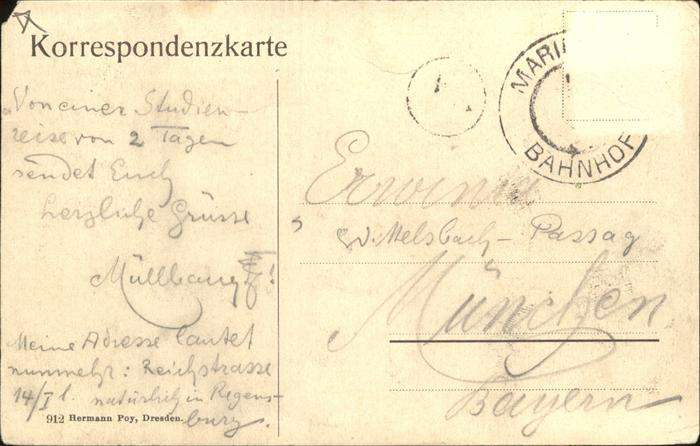 Korrespondenzkarte
Von einer Studien-
reise von 2 Tagen
sendet Euch
herzliche Grüsse
Müllbaug
Meine Adresse lautet
nunmehr: Reichstrasse
14/I l. natürlich in Regens-
burg.
912 Hermann Poy, Dresden.
MARI
BAHNHOF
Erwinia
Wittelsbach- Passag
München
Bayern